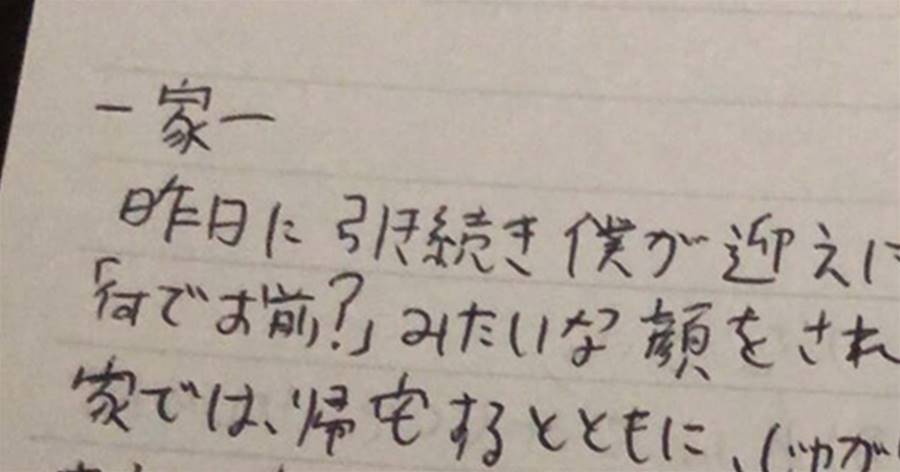 ー家ー
昨日に引き続き僕が迎えに
「何でお前?」みたいな顔をされ
家では、帰宅するとともに、